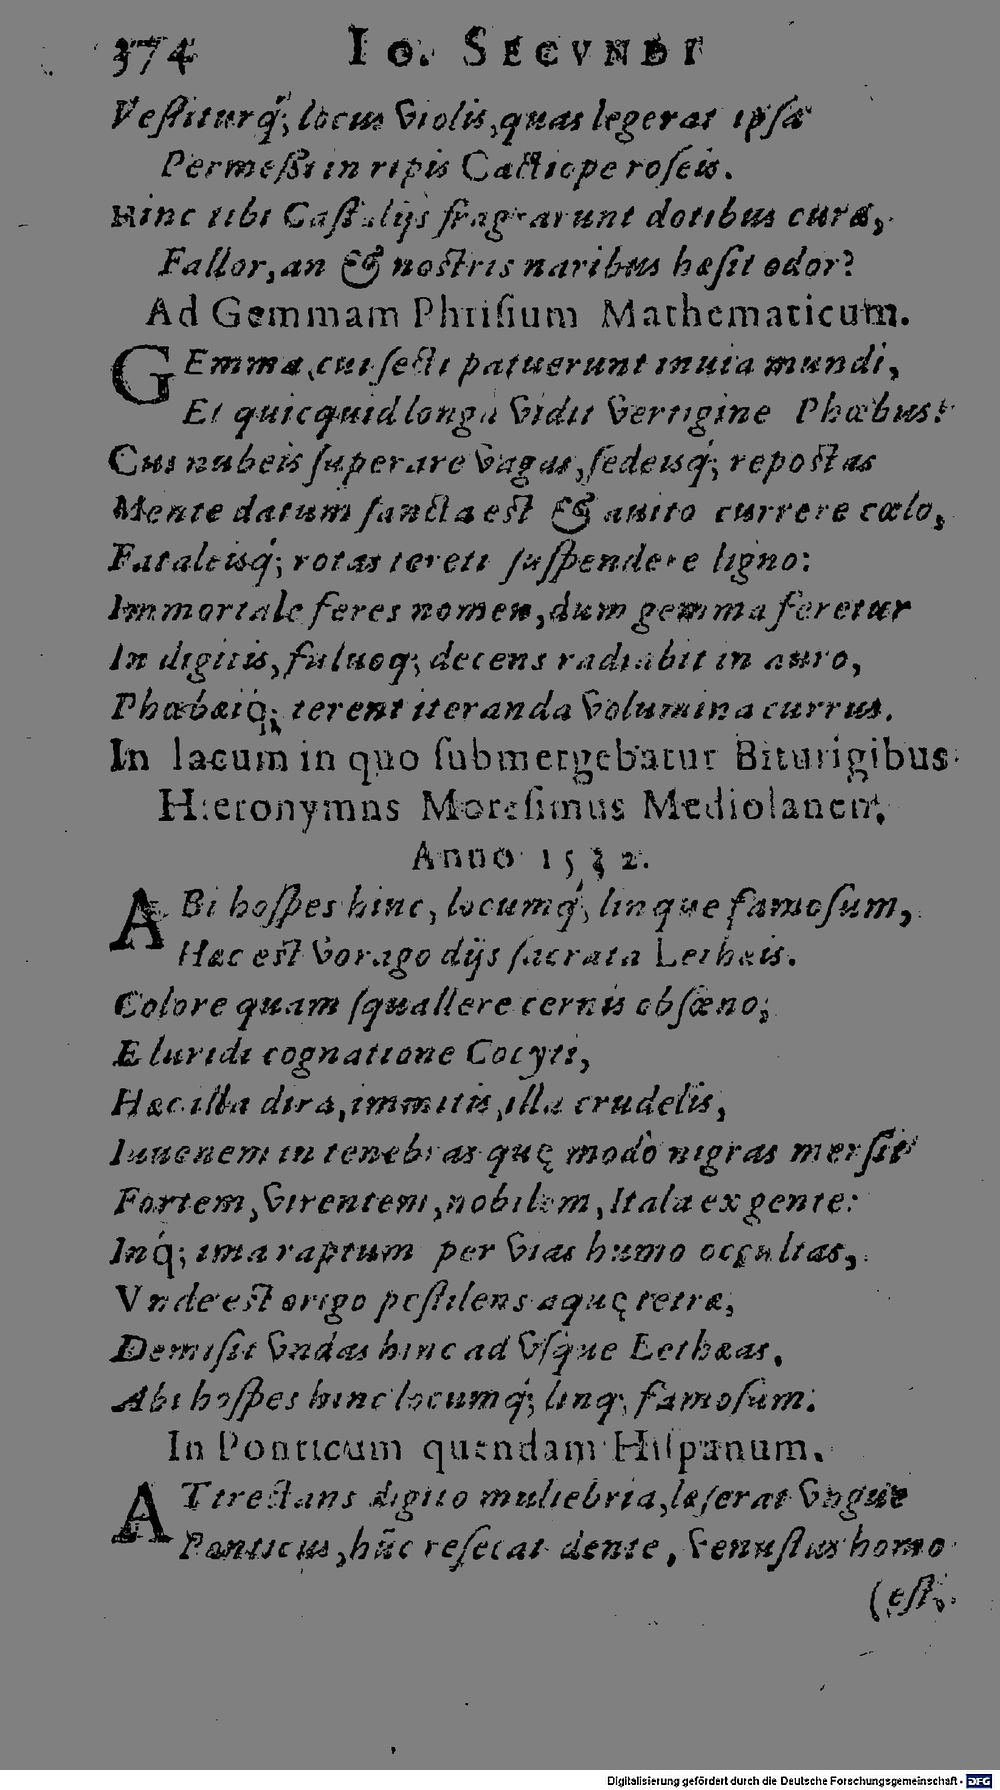 374 IO. SECVNDI
Veſtiturq́; locus violis, quas legerat ipſa
Permeſſi in ripis Calliope roſeis.
Hinc tibi Caſtalijs fragrarunt dotibus curæ,
Fallor, an & noſtris naribus hæſit odor?
Ad Gemmam Phriſium Mathematicum.
GEmma, cui ſecti patuerunt inuia mundi,
Et quicquid longa vidit vertigine Phœbus:
Cui nubeis ſuperare vagas, ſedeisq́; repoſtas
Mente datum ſancta eſt & auito currere cœlo,
Fataleisq́; rotas tereti ſuſpendere ligno:
Immortale feres nomen, dum gemma feretur
In digitis, fuluoq; decens radiabit in auro,
Phœbæiq́; terent iteranda volumina currus.
In lacum in quo ſubmergebatur Biturigibus
Hieronymus Moreſinus Mediolanen.
Anno 1532.
ABi hoſpes hinc, locumq́; linque famoſum,
Hæc eſt vorago dijs ſacrata Lethæis.
Colore quam ſquallere cernis obſœno;
E luridi cognatione Cocyti,
Hæc illa dira, immitis, illa crudelis,
Iuuenem in tenebras quę modò nigras merſit
Fortem, virentem, nobilem, Itala ex gente:
Inq́; ima raptum per vias humo occultas,
Vnde eſt origo peſtilens aquę tetræ,
Demiſit vndas hinc ad vſque Lethæas.
Abi hoſpes hinc locumq́; linq; famoſum.
In Ponticum quendam Hiſpanum.
ATtrectans digito muliebria, læſerat vngue
Ponticus, hũc reſecat dente, venuſtus homo
(eſt.
Digitalisierung gefördert durch die Deutsche Forschungsgemeinschaft - DFG